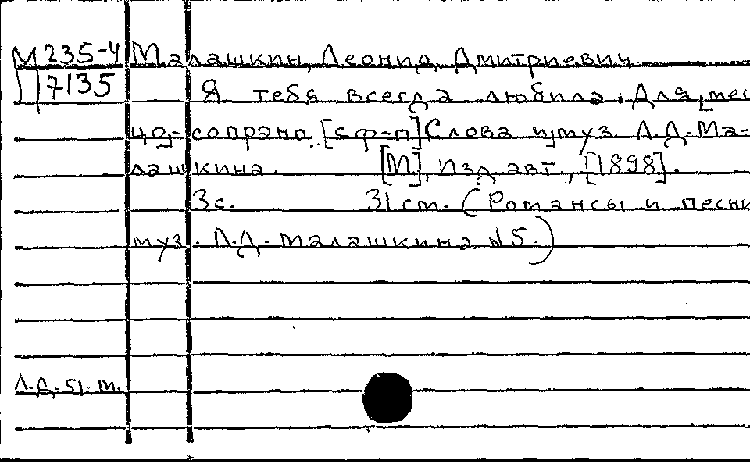 М 235-4 Малашкин, Леонид Дмитриевич
7135 Я тебя всегда любила. Для мец-
цо-сопрано [с ф-п] Слова и муз. Л.Д. Ма-
лашкина. [М], Изд. авт., [1898].
3с. 31 см. (Романсы и песни
муз. Л.Д. Малашкина №5.)